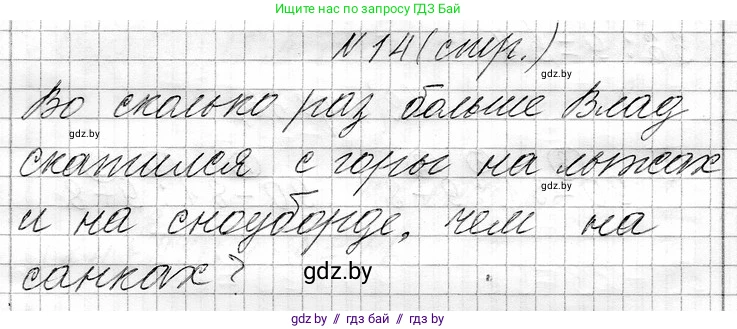 Ищите нас по запросу ГДЗ Бай
N 14 (стр.)
gdz.by
Во сколько раз больше Влад
gdz.by
скатился с горы на лыжах
gdz.by
и на сноуборде, чем на
санках?
gdz.by
gdz.by // гдз бай // gdz.by